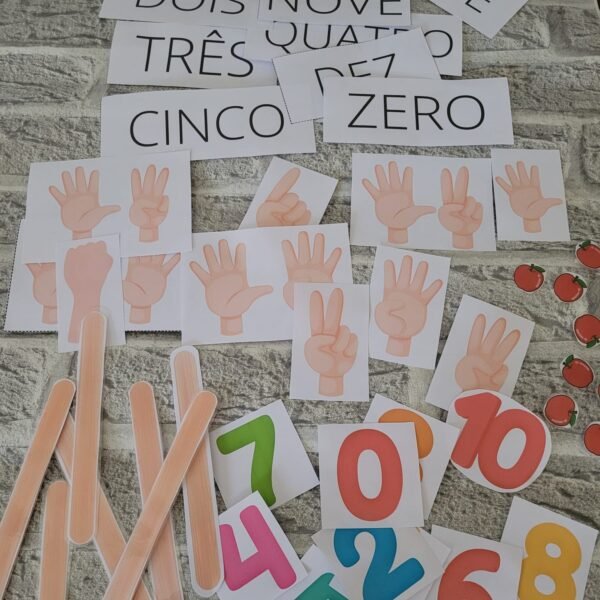 DOIS NOVE
TRÊS QUATRO
DEZ
CINCO ZERO
7 0 10
4 2 6 8